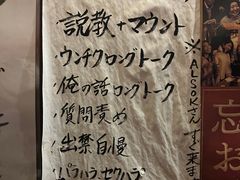 説教+マウント
・ウンチクロングトーク
・俺の話ロングトーク
・質問責め
・出禁自慢
・パラハラ、セクハラ
※ALSOKさんすぐ来ます
忘
お